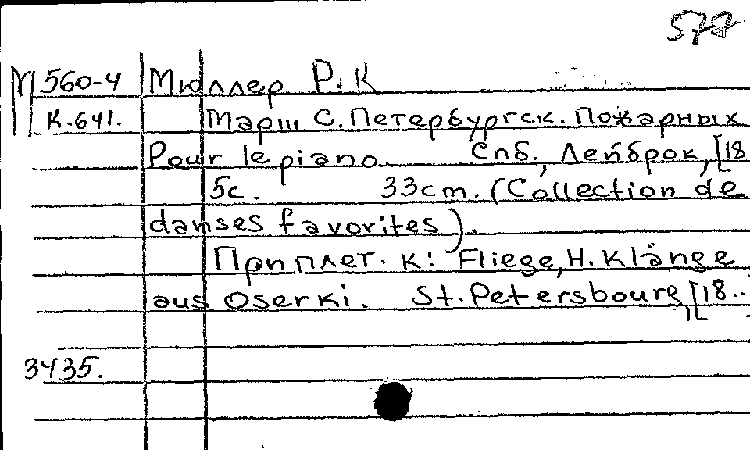 577
М 560-4 Мюллер Р. К
К-641. Марш С. Петербургск. Пожарных
Pour le piano. Спб., Лейброк, [18
5с. 33cm. (Collection de
danses favorites).
Приплет. к: Fliege, H. Klänge
aus Oserki. St. Petersbourg, [18..
3435.